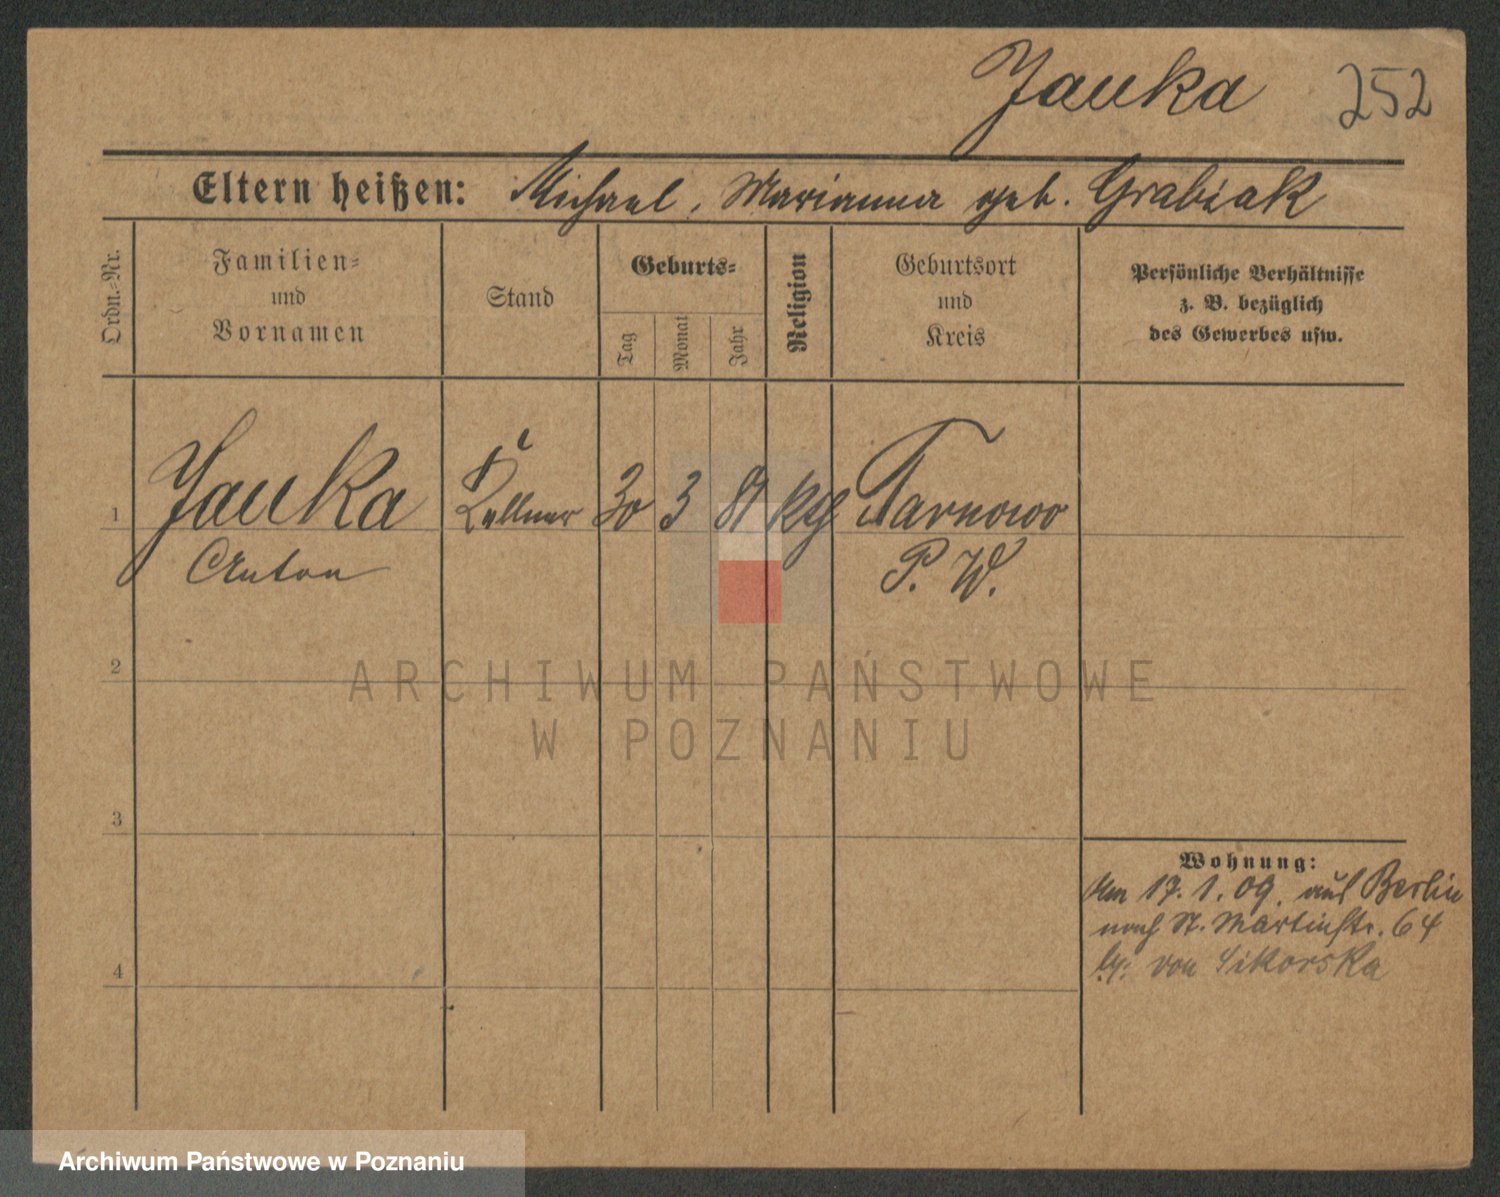 Jauka 252
Eltern heißen: Michael, Marianna geb. Grabiak
Ordn.-Nr.
Familien-
und
Vornamen
Stand
Geburts-
Tag
Monat
Jahr
Religion
Geburtsort
und
Kreis
Persönliche Verhältnisse
z. B. bezüglich
des Gewerbes usw.
1 Jauka Kellner 30 3 87 kth Tarnowo
Anton P. W.
2
3
4
Wohnung:
Am 17.1.09. aus Berlin
nach St. Martinstr. 64
von Sikorska
ARCHIWUM PAŃSTWOWE
W POZNANIU
Archiwum Państwowe w Poznaniu